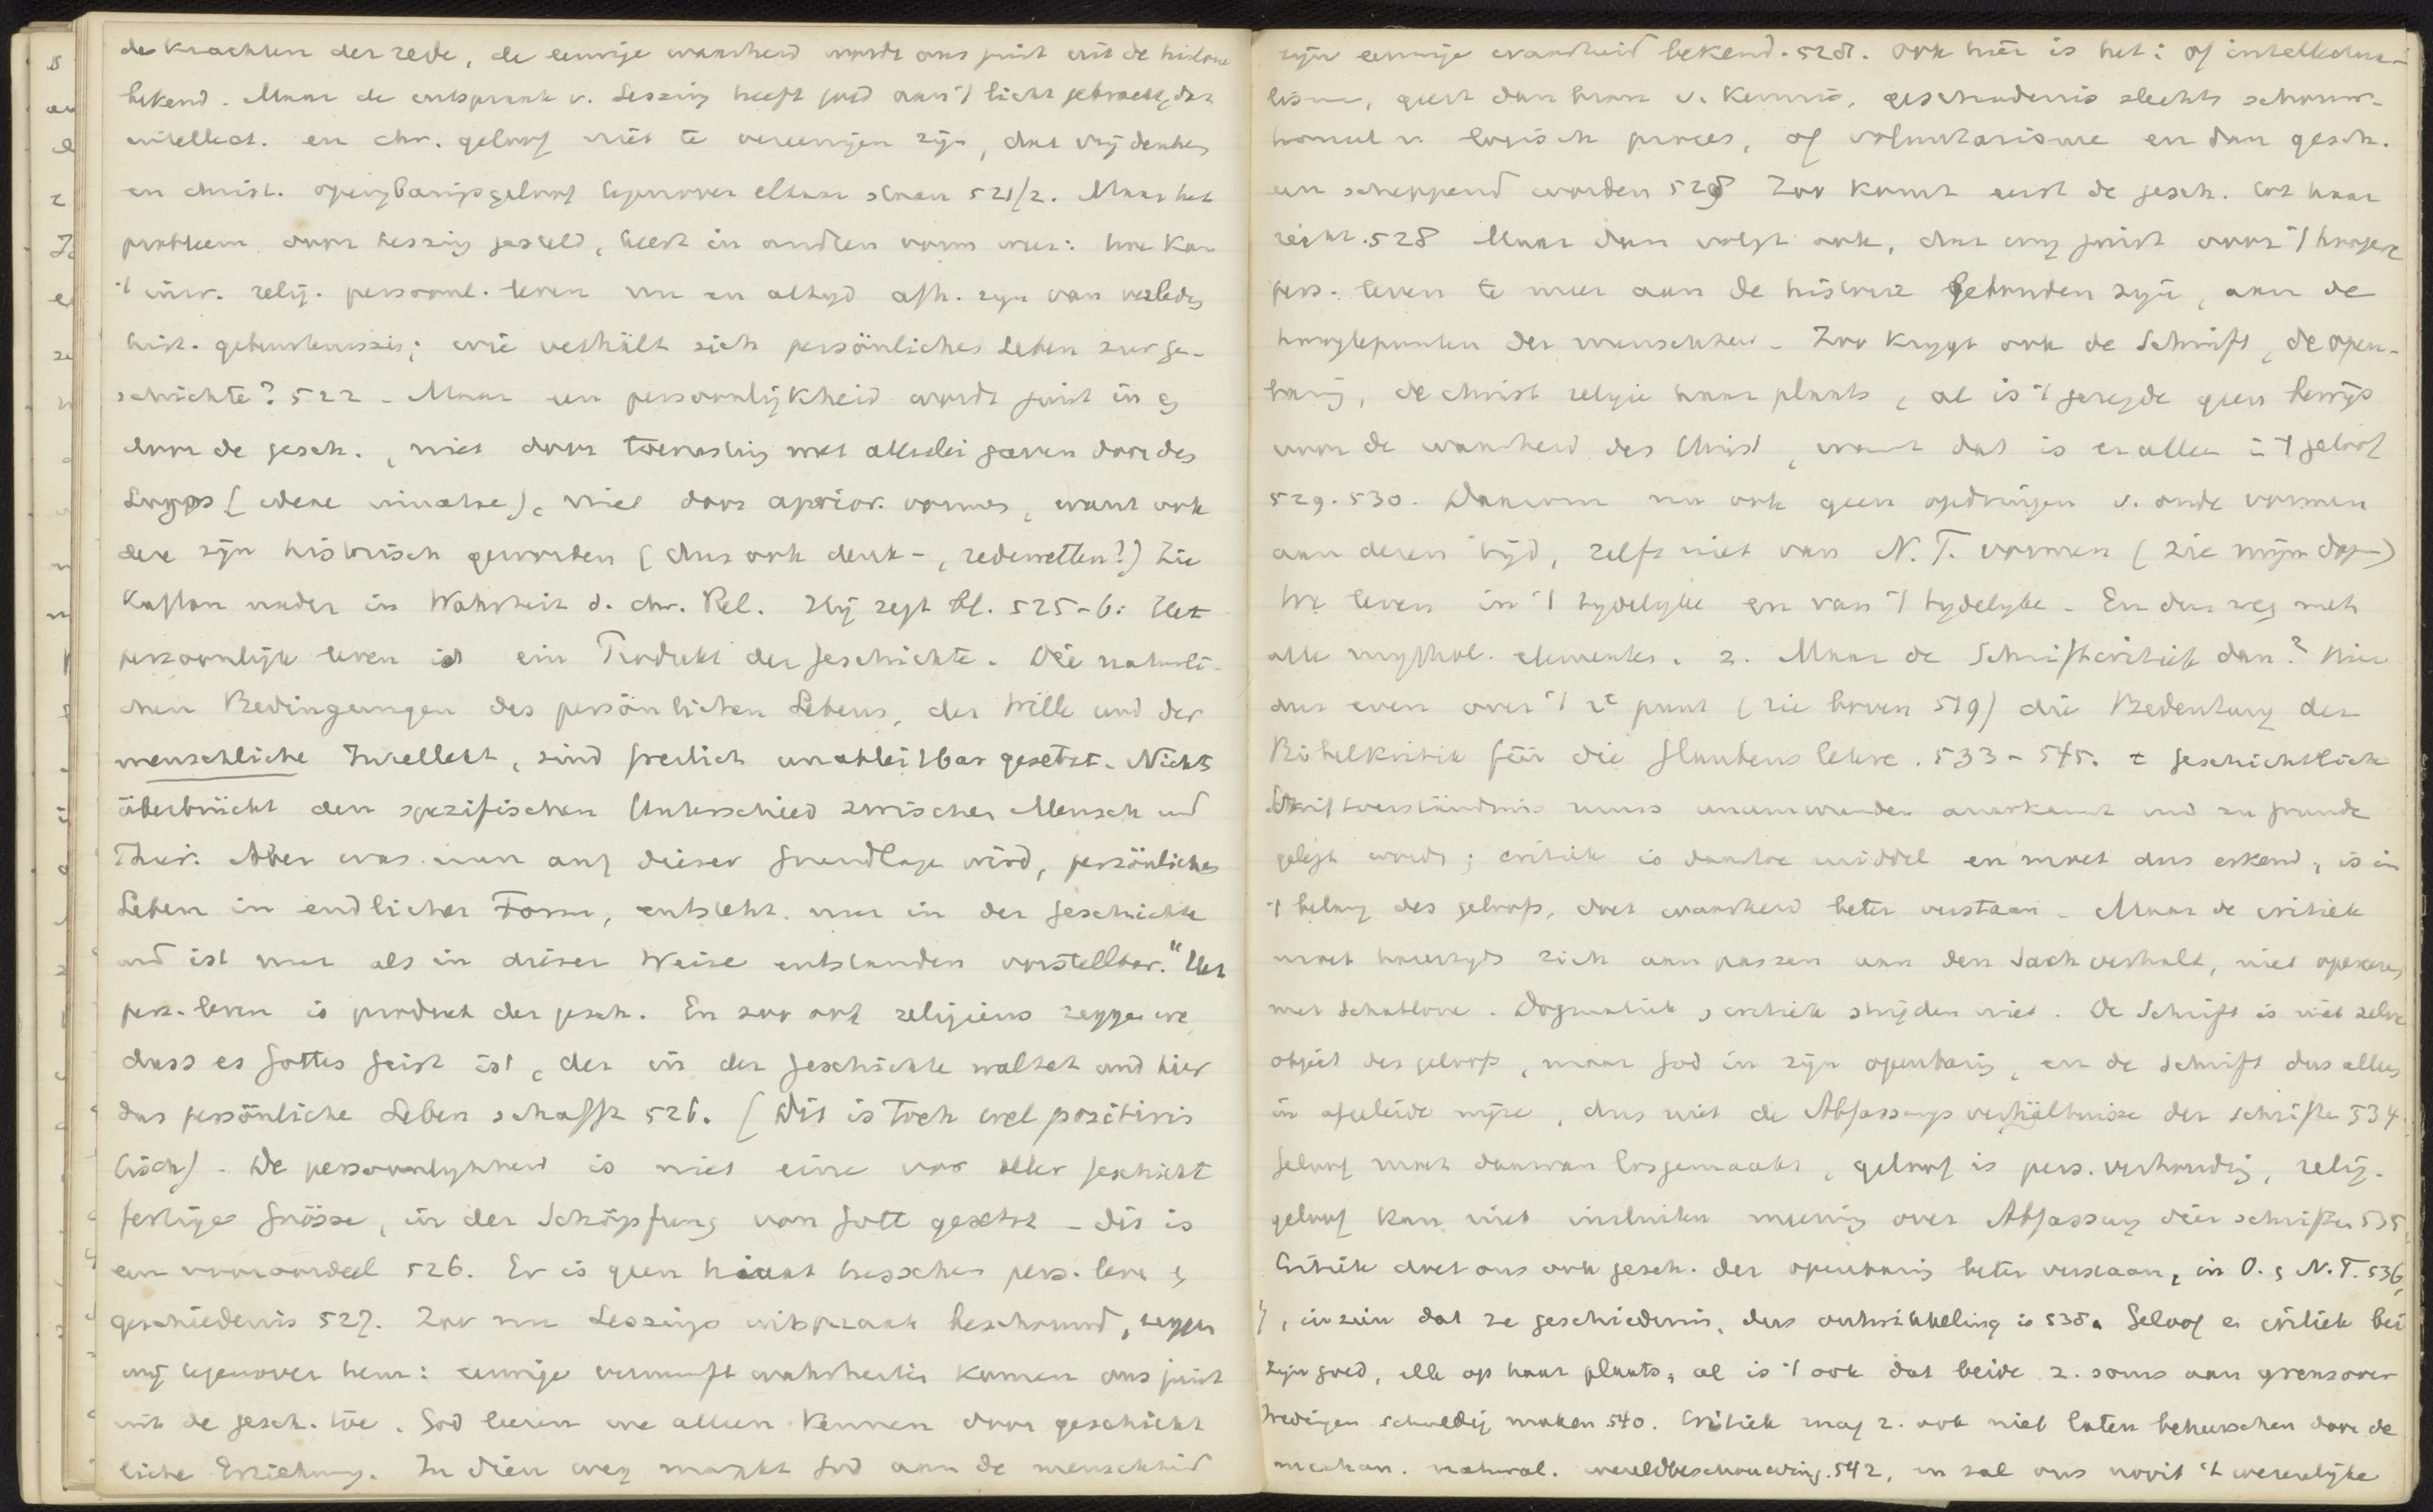 de krachten der rede, de eeuwige waarheid wordt ons juist uit de historie
bekend. Maar de uitspraak v. Lessing heeft goed aan 't licht gebracht, dat
intellect. en chr. geloof niet te vereenigen zijn, dat vrij denken
en christ. openbaringsgeloof tegenover elkaar staan 521/2. Maar het
probleem door Lessing gesteld, keert in andren vorm weer: hoe kan
't inw. relig. persoonl. leven nu en altyd afh. zyn van verleden
hist. gebeurtenissen; wie verhält sich persönliches Leben zur Ge-
schichte? 522 - Maar een persoonlijkheid wordt juist in en
door de gesch., niet door toerusting met allerlei gaven door den
Logos (ideae innatae), niet door aprior. vormen, want ook
deze zijn historisch geworden (dus ook denk-, redewetten?) Zie
Kaftan nader in Wahrheit d. chr. Rel. Hij zegt bl. 525-6: Het
persoonlijk leven ist ein Produkt der Geschichte. Die natürli-
chen Bedingungen des persönlichen Lebens, der Wille und der
menschliche Intellekt, sind freilich unableitbar gesetzt. Nichts
überbrückt den spezifischen Unterschied zwischen Mensch und
Thier. Aber was nun auf dieser Grundlage wird, persönliches
Leben in endlicher Form, entsteht nur in der Geschichte
und ist nur als in dieser Weise entstanden vorstellbar." Het
pers. leven is product der gesch. En zoo ook religieus zeggen we
dass es Gottes Geist ist, der in der Geschichte waltet und hier
das persönliche Leben schafft 526. (Dit is toch wel positivis
tisch) - De persoonlykheid is niet eine vor aller Geschicht
fertige Grösse, in der Schöpfung von Gott gesetzt - dit is
een vooroordeel 526. Er is geen hiaat tusschen pers. leven en
geschiedenis 527. Zoo nu Lessings uitspraak beschouwd, zeggen
wij tegenover hem: eeuwige vernunft wahrheiten komen ons juist
uit de gesch. toe. God leeren we alleen kennen door geschicht
liche Erziehung. In dien weg maakt God aan de menschheid
zijn eeuwige waarheid bekend. 528. Ook hier is het: of intellectua-
lisme, geest dan bron v. kennis, geschiedenis slechts schouw-
tooneel v. logisch proces, of voluntarisme en dan gesch.
een scheppend worden 528 Zoo komt eerst de gesch. tot haar
recht. 528 Maar dan volgt ook, dat wij juist voor 't hoogere
pers. leven te meer aan de historie gebonden zijn, aan de
hoogtepunten der menschheid - Zoo krygt ook de Schrift, de open-
baring, de christ religie haar plaats, al is 't gezegde geen bewijs
voor de waarheid des Christ, want dat is er alleen in 't geloof
529. 530. Daarom nu ook geen opdringen v. oude vormen
aan dezen tijd, zelfs niet van N. T. vormen (zie mijn dogm)
We leven in 't tydelyke en van 't tydelyke - En dus weg met
alle mythol. elementen. 2. Maar de Schriftcritiek dan? Hier
dus even over 't 2e punt (zie boven 519) die Bedeutung der
Bibelkritik für die Glaubenslehre. 533-545. t geschichtliche
Schriftverständnis muss unumwunden anerkannt und zu grunde
gelegt words; critiek is daartoe middel en moet dus erkend, is in
't belang des geloofs, doet waarheid beter verstaan - Maar de critiek
moet harerzyds zich aan passen aan den Sachverhalt, niet opereeren
met schablone. Dogmatiek en critiek strijden niet. De Schrift is niet zelve
object des geloofs, maar God in zijn openbaring, en de schrift dus alleen
in afgeleide wijze, dus niet de Abfassungs verhältnisse der schriften 534.
Geloof moet daarvan losgemaakt, geloof is pers. verhouding, relig.
geloof kan niet insluiten mening over Abfassung dier schriften 535
Critiek doet ons ook gesch. der openbaring beter verstaan, in O. en N. T. 536,
, inzien dat ze geschiedenis, dus ontwikkeling is 538. Geloof en critiek bei
zijn goed, elk op haar plaats, al is 't ook dat beide z. soms aan grensover
tredingen schuldig maken 540. Critiek mag z. ook niet laten beheerschen door de
mechan. natural. wereldbeschouwing. 542, en zal ons nooit 't werkelijke